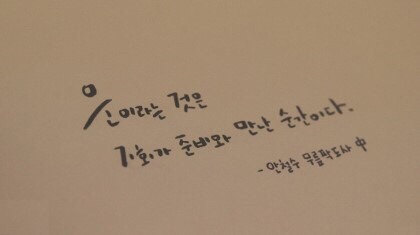 운이라는 것은
기회가 준비와 만난 순간이다.
- 안철수 무릎팍도사 中